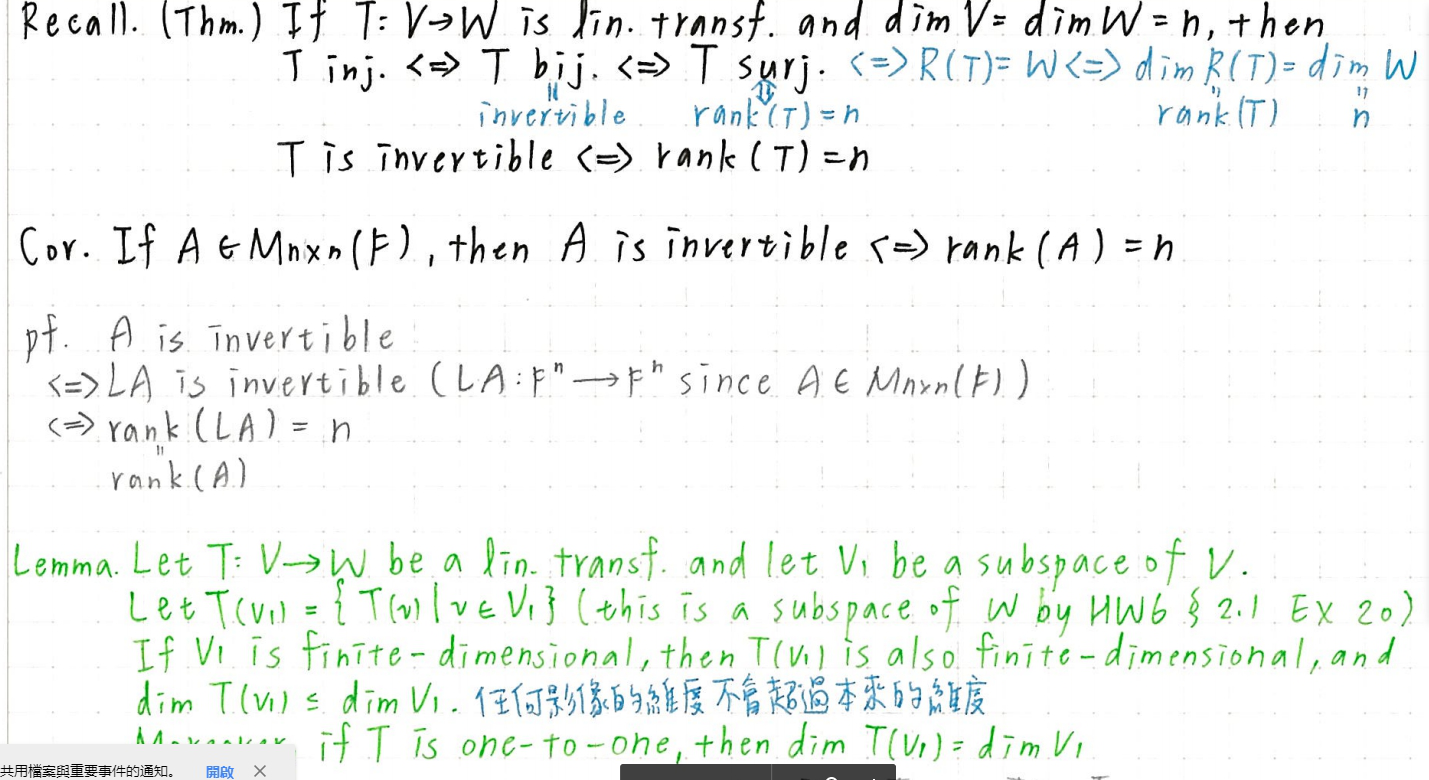 Recall. (Thm.) If T: V→W is lin. transf. and dim V = dim W = n, then
T inj. <=> T bij. <=> T surj. <=> R(T) = W <=> dim R(T) = dim W
invertible rank(T) = n rank(T) n
T is invertible <=> rank(T) = n
Cor. If A ∈ Mnxn(F), then A is invertible <=> rank(A) = n
pf. A is invertible
<=> LA is invertible (LA: Fⁿ → Fⁿ since A ∈ Mnxn(F))
<=> rank(LA) = n
rank(A)
Lemma. Let T: V→W be a lin. transf. and let V₁ be a subspace of V.
Let T(V₁) = {T(v) | v ∈ V₁} (this is a subspace of W by HW6 § 2.1 EX 20)
If V₁ is finite-dimensional, then T(V₁) is also finite-dimensional, and
dim T(V₁) ≤ dim V₁. 任何影像的維度不會超過本來的維度
Moreover, if T is one-to-one, then dim T(V₁) = dim V₁
共用檔案與重要事件的通知。 開啟 ×